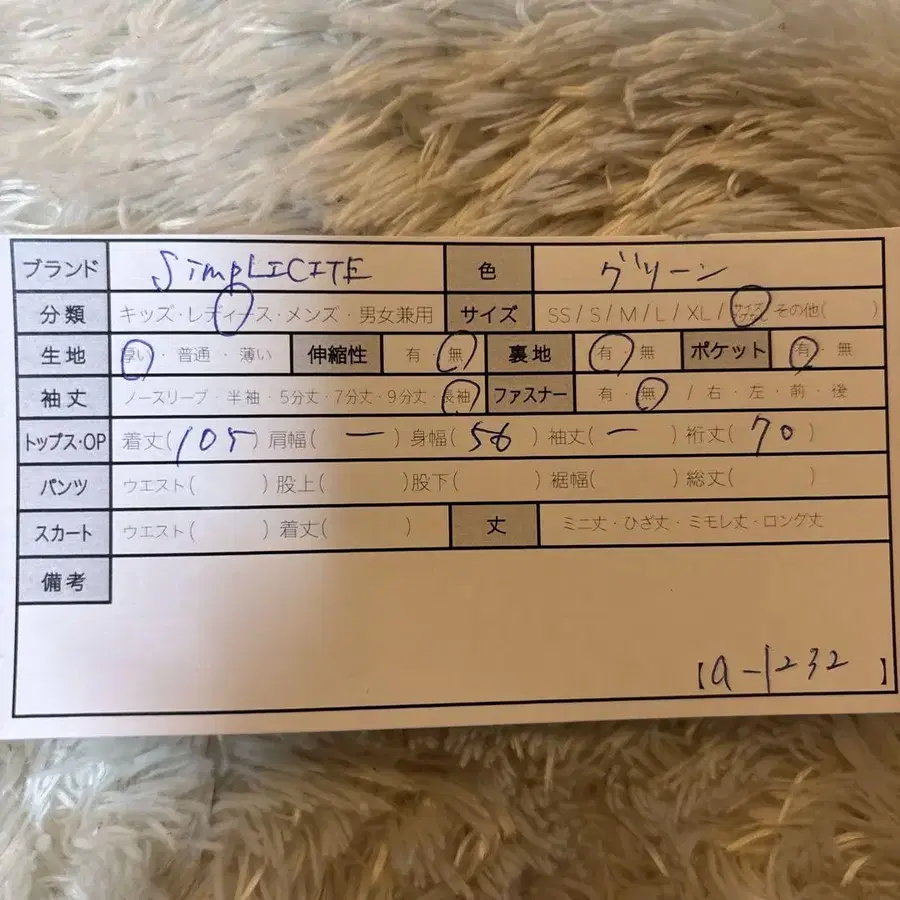 ブランド SimpLICITE 色 グリーン
分類 キッズ・レディース・メンズ・男女兼用 サイズ SS / S / M / L / XL / その他( )
生地 厚い・普通・薄い 伸縮性 有・無 裏地 有・無 ポケット 有・無
袖丈 ノースリーブ・半袖・5分丈・7分丈・9分丈・長袖 ファスナー 有・無 / 右・左・前・後
トップス・OP 着丈(105) 肩幅(ー) 身幅(56) 袖丈(ー) 裄丈(70)
パンツ ウエスト( ) 股上( ) 股下( ) 裾幅( ) 総丈( )
スカート ウエスト( ) 着丈( ) 丈 ミニ丈・ひざ丈・ミモレ丈・ロング丈
備考
【a-1232】